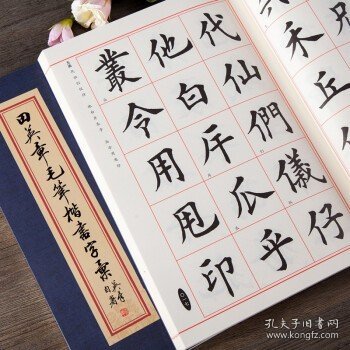 田英章毛笔楷书字汇
英章自署
代仙們儀仔
他白斥瓜乎
叢令用甩印
禾丘
孔夫子旧书网